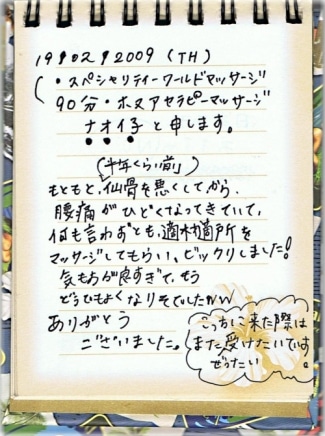 19/02/2009 (TH)
(・スペシャリティーワールドマッサージ
90分・ホヌアセラピーマッサージ
ナオイ子と申します。
(十年くらい前)
もともと、仙骨を悪くしてから、
腰痛がひどくなってきていて、
何も言わずとも、適材箇所を
マッサージしてもらい、ビックリしました!
気もちが良すぎて、もう
どうでもよくなりそうでしたww
ありがとう
ございました。
こっちに来た際は
また受けたいです。
ぜったい